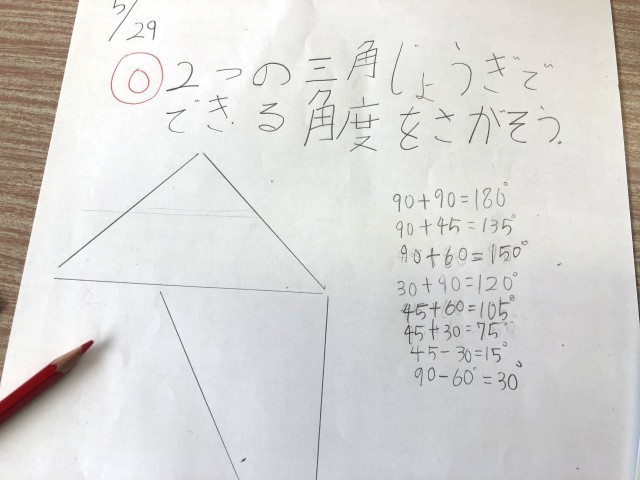 5/29
◎ 2つの三角じょうぎで
できる角度をさがそう.
90+90=180°
90+45=135°
90+60=150°
30+90=120°
45+60=105°
45+30=75°
45-30=15°
90-60°=30°